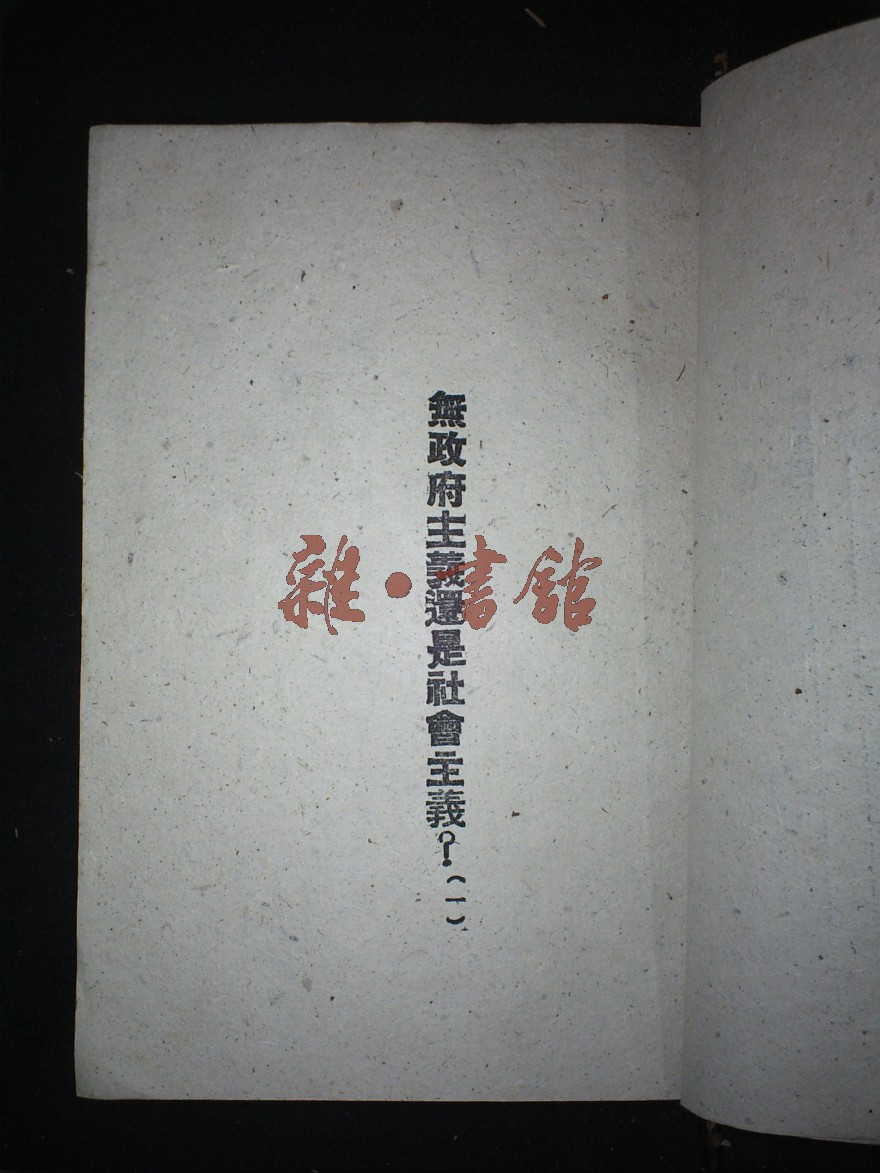 無政府主義還是社會主義？（一）
雜·書館